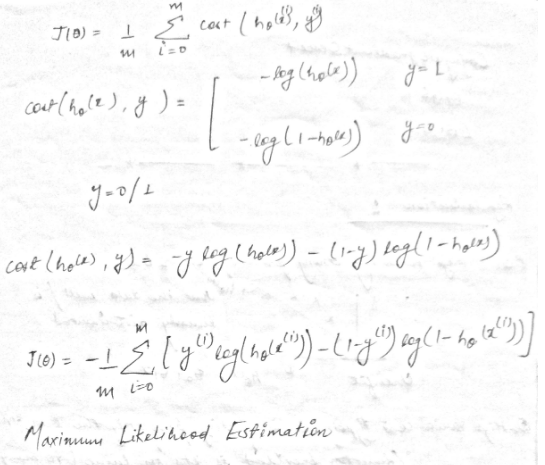 J(θ) = 1/m Σ_{i=0}^{m} cost (hθ(x^{(i)}), y^{(i)})
cost(hθ(x), y) = [ -log(hθ(x)) y=1
-log(1-hθ(x)) y=0
y=0/1
cost (hθ(x), y) = -y log(hθ(x)) - (1-y) log(1-hθ(x))
J(θ) = -1/m Σ_{i=0}^{m} [ y^{(i)} log(hθ(x^{(i)})) - (1-y^{(i)}) log(1-hθ(x^{(i)}))]
Maximum Likelihood Estimation